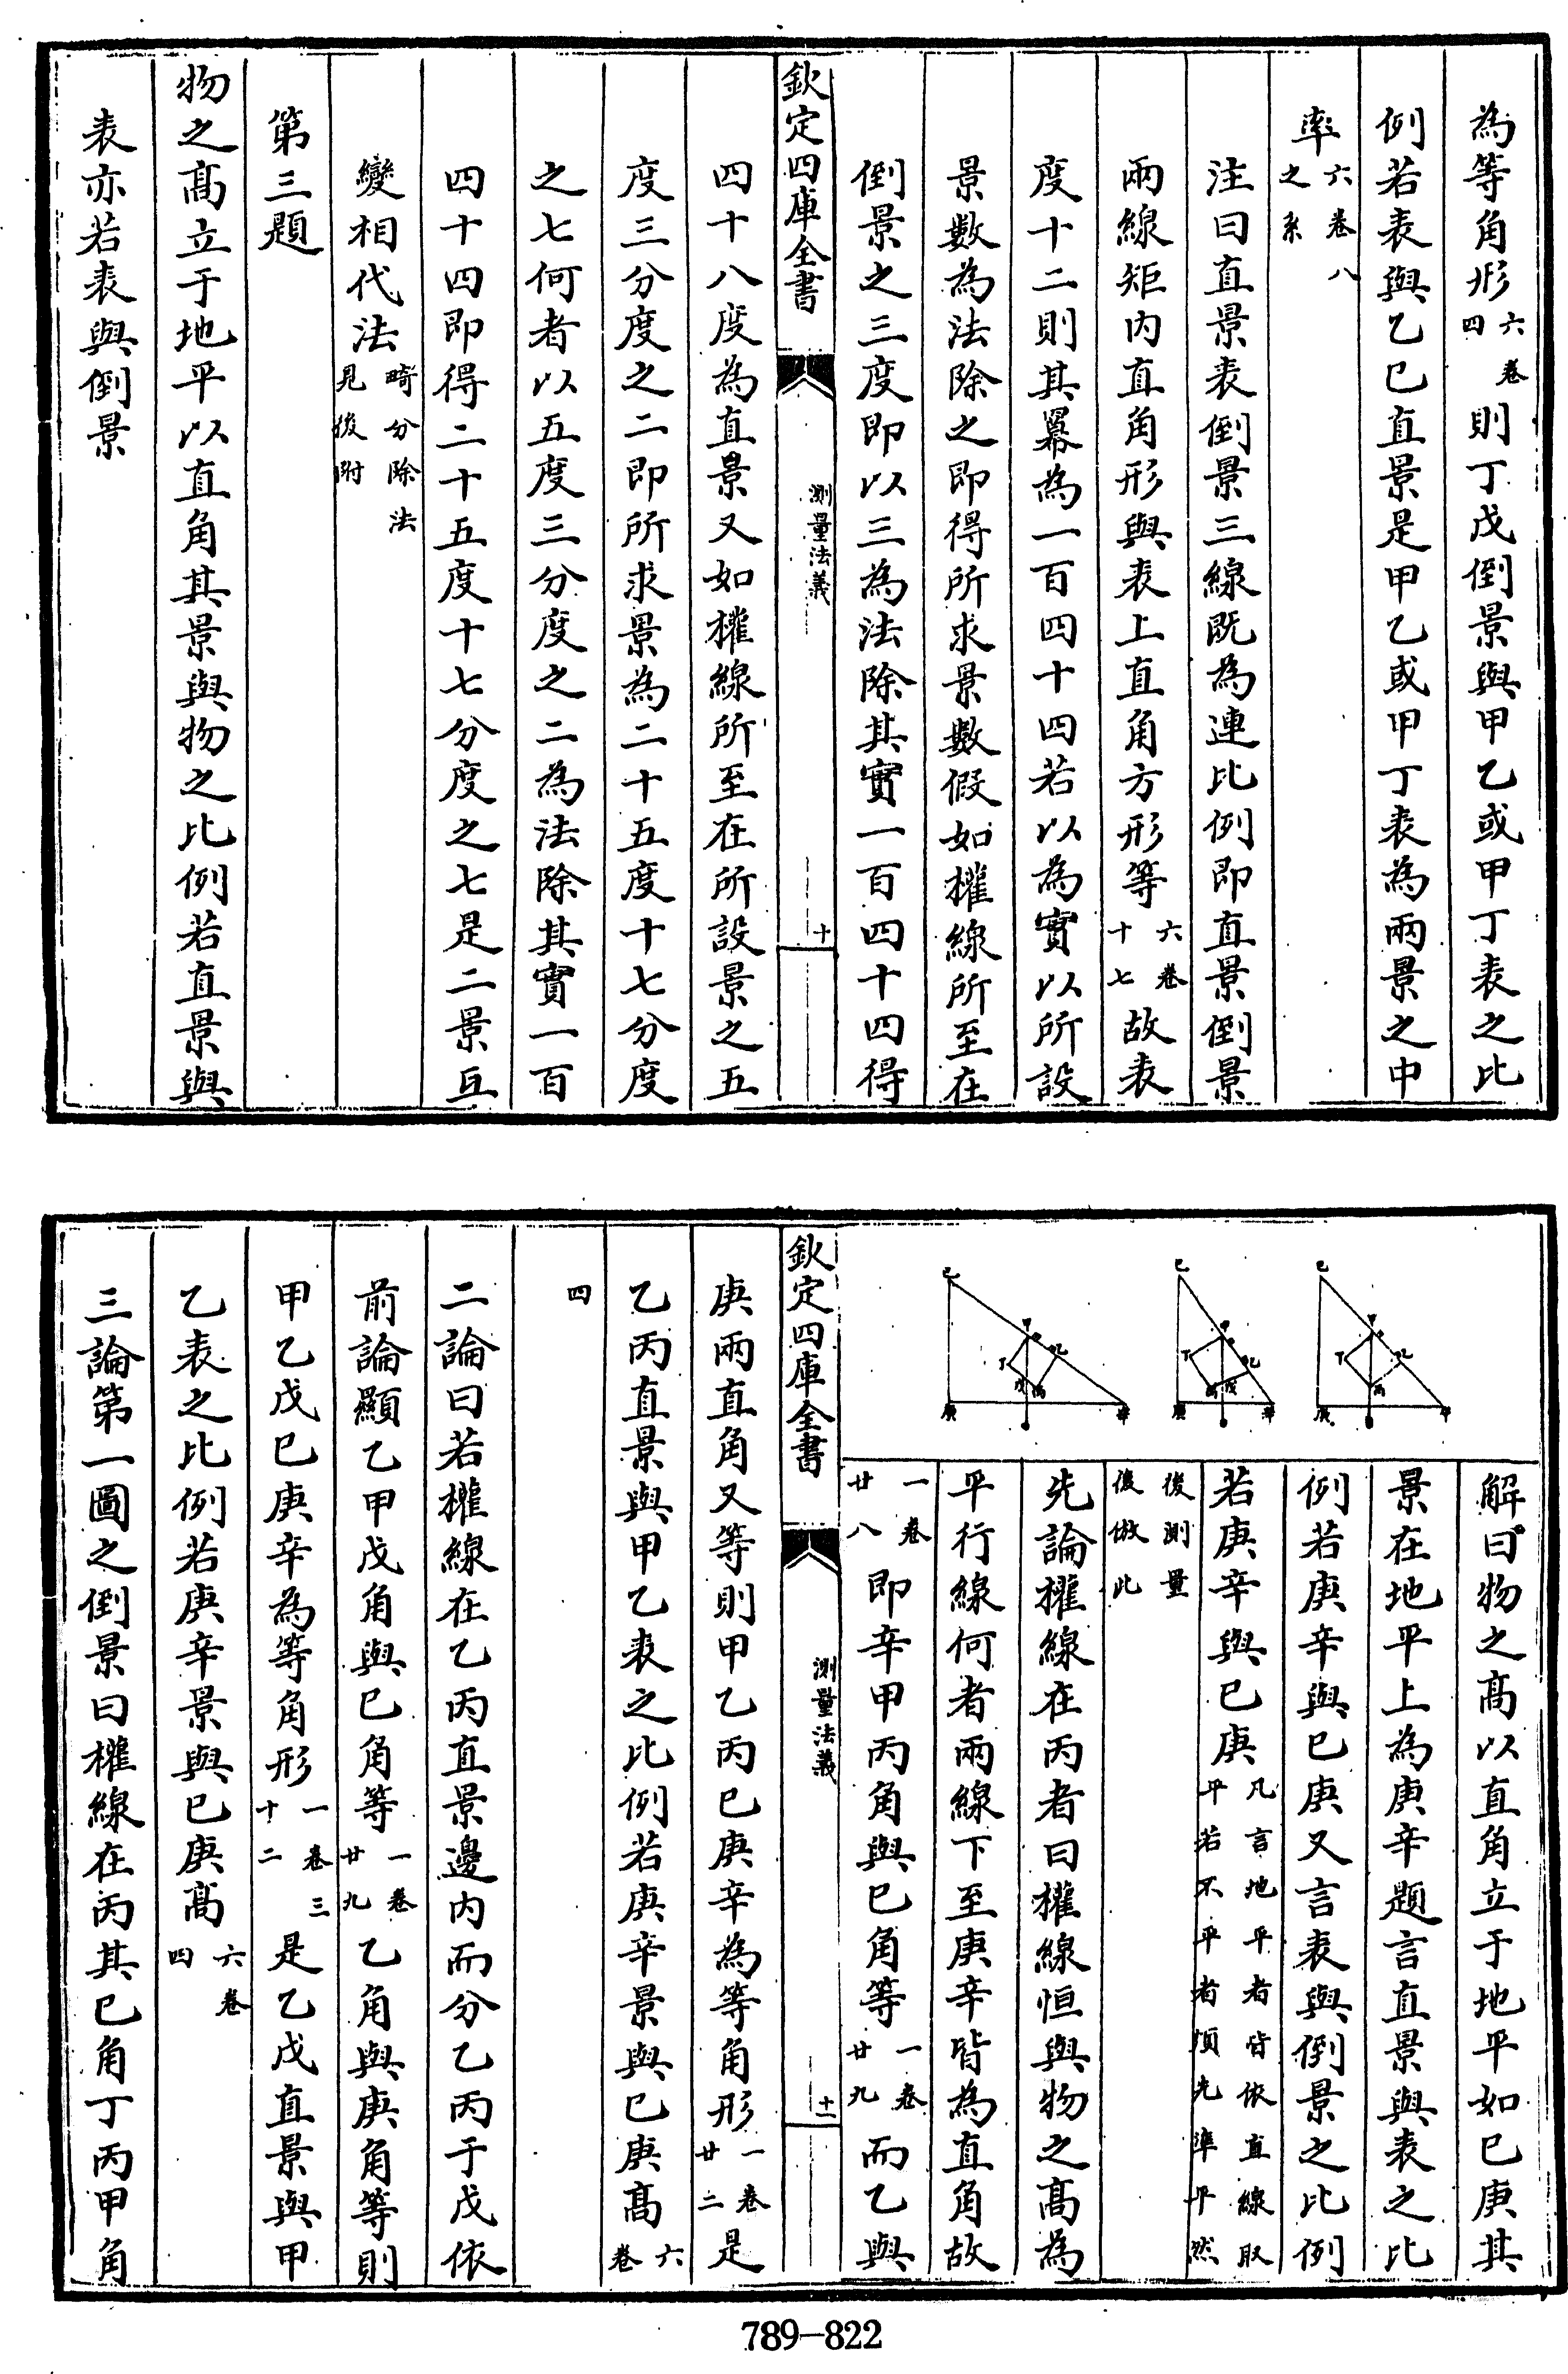 為等角形六卷四則丁戊倒景與甲乙或甲丁表之比
例若表與乙巳直景是甲乙或甲丁表為兩景之中
率六卷八之系
注曰直景表倒景三線既為連比例即直景倒景
兩線矩内直角形與表上直角方形等六卷十七故表
度十二則其羃為一百四十四若以為實以所設
景數為法除之即得所求景數假如權線所至在
倒景之三度即以三為法除其實一百四十四得
欽定四庫全書
測量法義
十
四十八度為直景又如權線所至在所設景之五
度三分度之二即所求景為二十五度十七分度
之七何者以五度三分度之二為法除其實一百
四十四即得二十五度十七分度之七是二景互
變相代法畸分除法見後附
第三題
物之髙立于地平以直角其景與物之比例若直景與
表亦若表與倒景
巳
甲
丁
乙
丙
庚
辛
巳
甲
丁
乙
丙
戊
庚
辛
巳
甲
丁
乙
戊
丙
庚
辛
解曰物之髙以直角立于地平如巳庚其
景在地平上為庚辛題言直景與表之比
例若庚辛與巳庚又言表與倒景之比例
若庚辛與巳庚凡言地平者皆依直線取平若不平者須先準平然
後測量後倣此
先論權線在丙者曰權線恒與物之髙為
平行線何者兩線下至庚辛皆為直角故
一卷廿八即辛甲丙角與巳角等一卷廿九而乙與
欽定四庫全書
測量法義
十一
庚兩直角又等則甲乙丙巳庚辛為等角形一卷廿二是
乙丙直景與甲乙表之比例若庚辛景與巳庚髙六卷
四
二論曰若權線在乙丙直景邊内而分乙丙于戊依
前論顯乙甲戊角與巳角等一卷廿九乙角與庚角等則
甲乙戊巳庚辛為等角形一卷三十二是乙戊直景與甲
乙表之比例若庚辛景與巳庚髙六卷四
三論第一圖之倒景曰權線在丙其巳角丁丙甲角
789-822